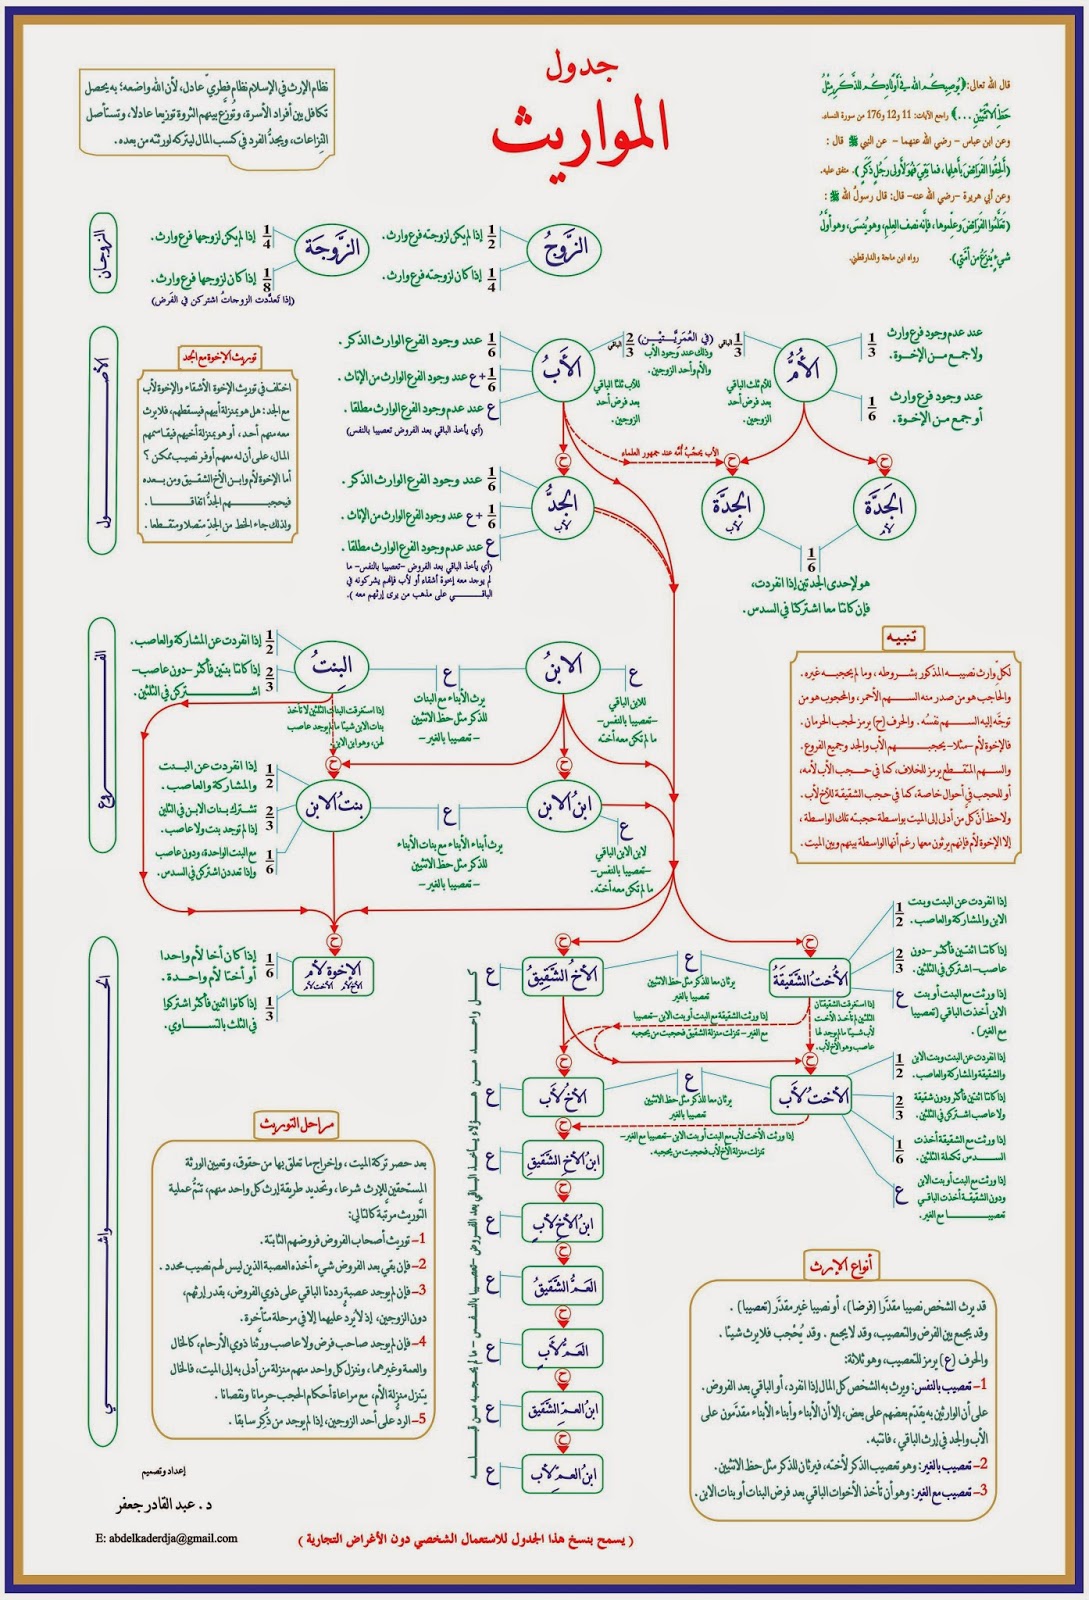 جدول
المواريث
نظام الإرث في الإسلام نظام فطريّ عادل، لأن الله واضعه؛ به يحصل
تكافل بين أفراد الأسرة، وتُوزَّع بينهم الثروة توزيعا عادلا، وتستأصل
النِزاعات، ويجدُّ الفرد في كسب المال ليتركه لورثته من بعده.
قال الله تعالى: ﴿يُوصِيكُم الله فِي أَوْلَادِكُم للذَّكَرِ مِثْلُ
حَظِّ الأُنثَيَيْنِ ...﴾ راجع الآيات: 11 و12 و176 من سورة النساء.
وعن ابن عباس - رضي الله عنهما - عن النبي ﷺ قال :
(أَلْحِقُوا الفَرَائِضَ بِأَهْلِهَا، فما بَقِيَ فَهُوَ لأَولى رَجُلٍ ذَكَرٍ ). متفق عليه.
وعن أبي هريرة -رضي الله عنه- قال: قال رسولُ الله ﷺ :
(تَعَلَّمُوا الفَرَائِضَ وعَلِّموها، فإنَّه نصف العِلمِ، وهو يُنسَى، وهو أوَّلُ
شيءٍ يُنزَعُ من أُمَّتي). رواه ابن ماجة والدارقطني.
الزوجـان
الزَّوجُ
1/2 إذا لم يكن لزوجته فرع وارث.
1/4 إذا كان لزوجته فرع وارث.
الزَّوجَة
1/4 إذا لم يكن لزوجها فرع وارث.
1/8 إذا كان لزوجها فرع وارث.
(إذا تعدَّدت الزوجاتُ اشتركن في الفَرض)
الأصـــول
الأُمُّ
1/3 عند عدم وجود فرع وارث
ولا جمع مـن الإخـوة.
1/6 عند وجود فرع وارث
أو جمع مـن الإخـوة.
1/3 الباقي
للأم ثلث الباقي
بعد فرض أحد
الزوجين.
(في العُمَرِيَّـتَيْـن)
وذلك عند وجود الأب
والأم وأحد الزوجين.
2/3 الباقي
للأب ثلثا الباقي
بعد فرض أحد
الزوجين.
الأَبُ
1/6 عند وجود الفرع الوارث الذكر .
1/6 +ع عند وجود الفرع الوارث من الإناث .
ع عند عدم وجود الفرع الوارث مطلقا .
(أي يأخذ الباقي بعد الفروض تعصيبا بالنفس)
الأب يحجُبُ أُمَّه عند جمهور العلماء
ح
ح
ح
الجدُّ
لأب
1/6 عند وجود الفرع الوارث الذكر .
1/6 +ع عند وجود الفرع الوارث من الإناث .
ع عند عدم وجود الفرع الوارث مطلقا .
(أي يأخذ الباقي بعد الفروض -تعصيبا بالنفس- ما
لم يوجد معه إخوة أشقاء أو لأب فإنهم يشركونه في
الباقـــي على مذهب من يرى إرثهم معه ).
الجدَّة
لأب
الجدَّة
لأم
1/6
هو لإحدى الجدتين إذا انفردت،
فإن كانتا معا اشتركتا في السدس.
توريث الإخوة مع الجد
اختلف في توريث الإخوة الأشقاء والإخوة لأب
مع الجد: هل هو بمنزلة أبيهم فيسقطهم، فلا يرث
معه منهم أحد، أو هو بمنزلة أخيهم فيقاسمهم
المال، على أن له معهم أوفر نصيب ممكن ؟
أما الإخوة لأم وابـن الأخ الشقيـق ومن بعـده
فيحجبـــهم الجدُّ اتفاقــــا .
ولذلك جاء الخط من الجدِّ متصلا ومتقطعا .
تنبيه
لكلّ وارث نصيبه المذكور بشروطه، وما لم يحجبه غيره .
والحاجب هو من صدر منه السـهم الأحمر، والمحجوب هو من
توجّه إليه السـهم نفسُه . والحرف (ح) يرمز لحجب الحرمان .
فالإخوة لأم -مثلا- يحجبهم الأب والجد وجميع الفروع .
والسهم المتقطع يرمز للخلاف، كما في حجب الأب لأمه،
أو للحجب في أحوال خاصة، كما في حجب الشقيقة للأخ لأب.
ولاحظ أنَّ كلَّ من أدلى إلى الميت بواسطة حجبته تلك الواسطة ،
إلا الإخوة لأم فإنهم يرثون معها رغم أنها الواسطة بينهم وبين الميت.
الفـــروع
الابنُ
ع
للابن الباقي
-تعصيبا بالنفس-
ما لم تكن معه أخته
ع
يرث الأبناء مع البنات
للذكر مثل حظ الانثيين
-تعصيبا بالغير-
البِنتُ
1/2 إذا انفردت عن المشاركة والعاصب.
2/3 إذا كانتا بنتين فأكثر -دون عاصب-
اشتـــركن في الثلثين.
إذا استغرقت البنات الثلثين لا تأخذ
بنات الابن شيئا ما لم يوجد عاصب
لهن، وهو ابن الابن.
ح
ح
ابنُ الابن
ع
لابن الابن الباقي
-تعصيبا بالنفس-
ما لم تكن معه أخته.
ع
يرث أبناء الأبناء مع بنات الأبناء
للذكر مثل حظ الانثيين
-تعصيبا بالغير-
بنتُ الابن
1/2 إذا انفردت عن البـنت
والمشاركة والعاصب.
2/3 تشترك بنات الابـن في الثلثين
إذا لم توجد بنت ولا عاصب.
1/6 مع البنت الواحدة، ودون عاصب
وإذا تعددن اشتركن في السدس.
الحـــواشـــي
ح
الإخوة لأم
الأخ لأم الأخت لأم
1/6 إذا كان أخا لأم واحدا
أو أختا لأم واحـدة.
1/3 إذا كانوا اثنين فأكثر اشتركوا
في الثلث بالتســاوي.
ح
الأخُ الشَّقيقُ
ع
ع
يرثان معا للذكر مثل حظ الانثيين
تعصيبا بالغير
ح
الأختُ الشَّقيقَةُ
1/2 إذا انفردت عن البنت وبنت
الابن والمشاركة والعاصب.
2/3 إذا كانـتا اثنتين فأكثـر -دون
عاصب- اشتركن في الثلثين.
ع إذا ورثت مع البنت أو بنت
الابن أخذت الباقي (تعصيبا
مع الغير) .
إذا ورثت الشقيقة مع البنت أو بنت الابن -تعصيبا
مع الغير- تنزلت منزلة الشقيق فحجبت من يحجبه
إذا استغرقت الشقيقتان
الثلثين لم تأخذ الأخت
لأب شيئا ما لم يوجد لها
عاصب وهو الأخ لأب.
ح
الأخُ لأب
ع
ع
يرثان معا للذكر مثل حظ الانثيين
تعصيبا بالغير
ح
الأختُ لأب
1/2 إذا انفردت عن البنت وبنت الابن
والشقيقة والمشاركة والعاصب.
2/3 إذا كانتا اثنتين فأكثر ودون شقيقة
ولا عاصب اشتركن في الثلثين.
1/6 إذا ورثت مع الشقيقة أخذت
السدس تكملة الثلثين.
ع إذا ورثت مع البنت أو بنت الابن
ودون الشقيقـة أخذت الباقـي
تعصيبـــا مع الغير.
إذا ورثت الأخت لأب مع البنت أو بنت الابن -تعصيبا مع الغير-
تنزلت منزلة الأخ لأب فحجبت من يحجبه.
ح
ابنُ الأخِ الشَّقيقِ
ع
ح
ابنُ الأخِ لأب
ع
ح
العَمُّ الشَّقيقُ
ع
ح
العَمُّ لأب
ع
ح
ابنُ العـمِّ الشَّقيق
ع
ح
ابنُ العـمِّ لأب
ع
كـل واحـد مـن هـؤلاء يـأخـذ الباقي بعد الفـروض -تعصيبا بالنفـس- ما لم يحجبـه مـن قبلــه
مراحل التوريث
بعد حصر تركة الميت، وإخراج ما تعلق بها من حقوق، وتعيين الورثة
المستحقين للإرث شرعا، وتحديد طريقة إرث كل واحد منهم، تتمُّ عملية
التَّوريث مرتبة كالتالي:
1- توريث أصحاب الفروض فروضهم الثابتة.
2- فإن بقي بعد الفروض شيء أخذه العصبة الذين ليس لهم نصيب محدد .
3- فإن لم يوجد عصبة رددنا الباقي على ذوي الفروض، بقدر إرثهم،
دون الزوجين، إذ لا يُردُّ عليهما إلا في مرحلة متأخرة.
4- فإن لم يوجد صاحب فرض ولا عاصب ورَّثنا ذوي الأرحام، كالخال
والعمة وغيرهما، وننزل كل واحد منهم منزلة من أدلى به إلى الميت، فالخال
يتنزل منزلة الأم، مع مراعاة أحكام الحجب حرمانا ونقصانا .
5- الردُّ على أحد الزوجين، إذا لم يوجد من ذُكِر سابقا .
أنواع الإرث
قد يرث الشخص نصيبا مقدّرا (فرضا)، أو نصيبا غير مقدَّر (تعصيبا) .
وقد يجمع بين الفرض والتعصيب، وقد لا يجمع . وقد يُحْجب فلا يرث شيئا .
والحرف (ع) يرمز للتعصيب، وهو ثلاثة:
1- تعصيب بالنفس: ويرث به الشخص كل المال إذا انفرد، أو الباقي بعد الفروض.
على أن الوارثين به يقدّم بعضهم على بعض، إلا أن الأبناء وأبناء الأبناء مقدَّمون على
الأب والجد في إرث الباقي، فانتبه.
2- تعصيب بالغير: وهو تعصيب الذكر لأخته، فيرثان للذكر مثل حظ الانثيين.
3- تعصيب مع الغير: وهو أن تأخذ الأخوات الباقي بعد فرض البنات أو بنات الابن.
إعداد وتصميم
د. عبد القادر جعفر
E: abdelkaderdja@gmail.com
( يسمح بنسخ هذا الجدول للاستعمال الشخصي دون الأغراض التجارية )